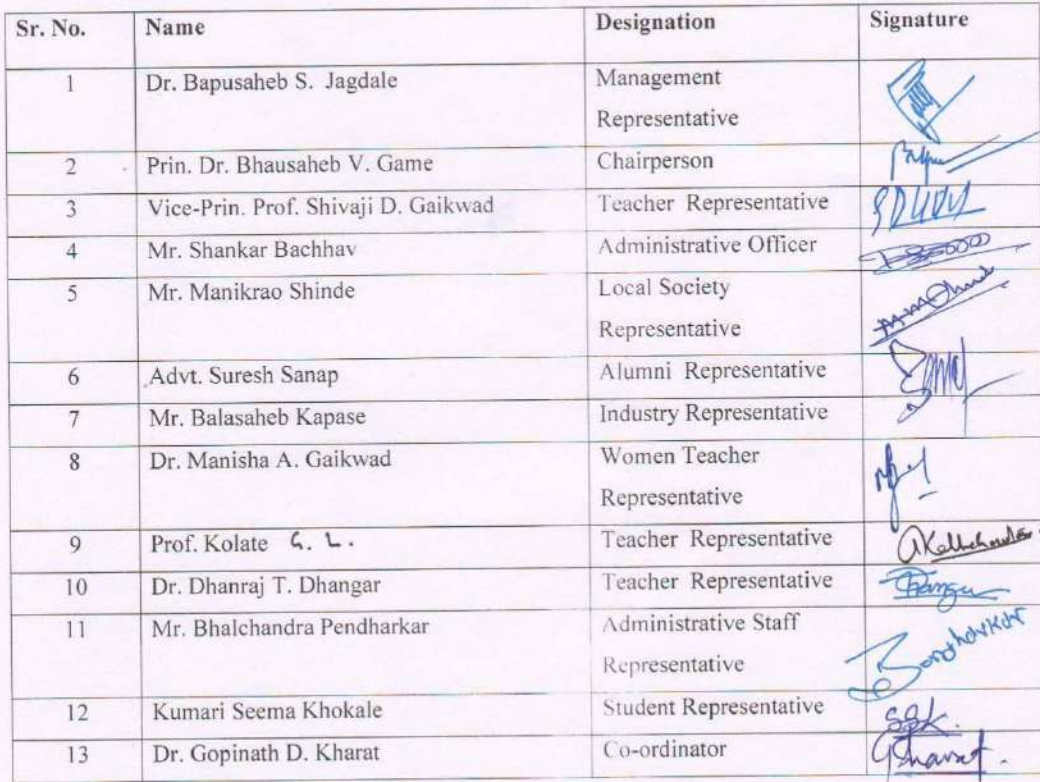 Sr. No. Name Designation Signature
1 Dr. Bapusaheb S. Jagdale Management
Representative
2 Prin. Dr. Bhausaheb V. Game Chairperson
3 Vice-Prin. Prof. Shivaji D. Gaikwad Teacher Representative
4 Mr. Shankar Bachhav Administrative Officer
5 Mr. Manikrao Shinde Local Society
Representative
6 Advt. Suresh Sanap Alumni Representative
7 Mr. Balasaheb Kapase Industry Representative
8 Dr. Manisha A. Gaikwad Women Teacher
Representative
9 Prof. Kolate G. L. Teacher Representative
10 Dr. Dhanraj T. Dhangar Teacher Representative
11 Mr. Bhalchandra Pendharkar Administrative Staff
Representative
12 Kumari Seema Khokale Student Representative SSK.
13 Dr. Gopinath D. Kharat Co-ordinator GKharat.